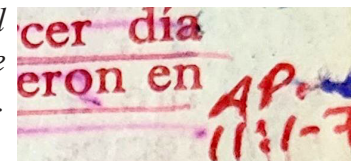 cer día
eron en
AP.
11:1-7